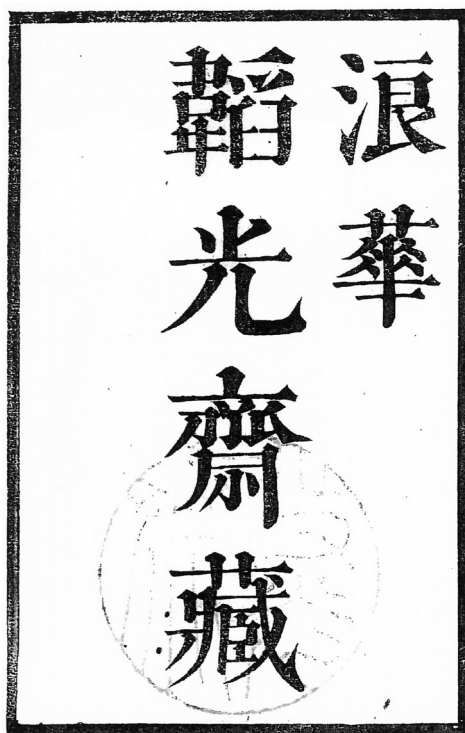 浪華
韜光齋藏